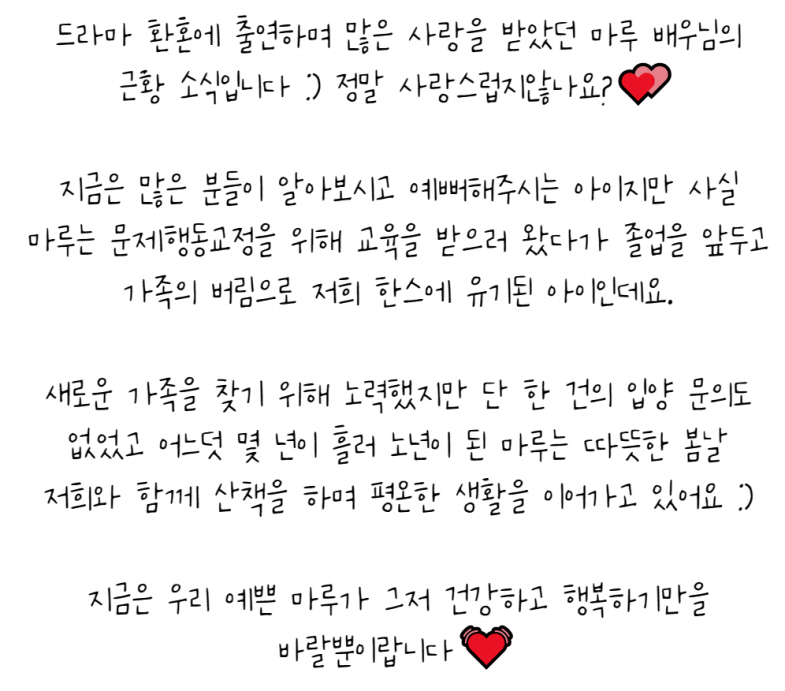 드라마 환혼에 출연하며 많은 사랑을 받았던 마루 배우님의
근황 소식입니다 :) 정말 사랑스럽지않나요?
지금은 많은 분들이 알아보시고 예뻐해주시는 아이지만 사실
마루는 문제행동교정을 위해 교육을 받으러 왔다가 졸업을 앞두고
가족의 버림으로 저희 한스에 유기된 아이인데요.
새로운 가족을 찾기 위해 노력했지만 단 한 건의 입양 문의도
없었고 어느덧 몇 년이 흘러 노년이 된 마루는 따뜻한 봄날
저희와 함께 산책을 하며 평온한 생활을 이어가고 있어요 :)
지금은 우리 예쁜 마루가 그저 건강하고 행복하기만을
바랄뿐이랍니다